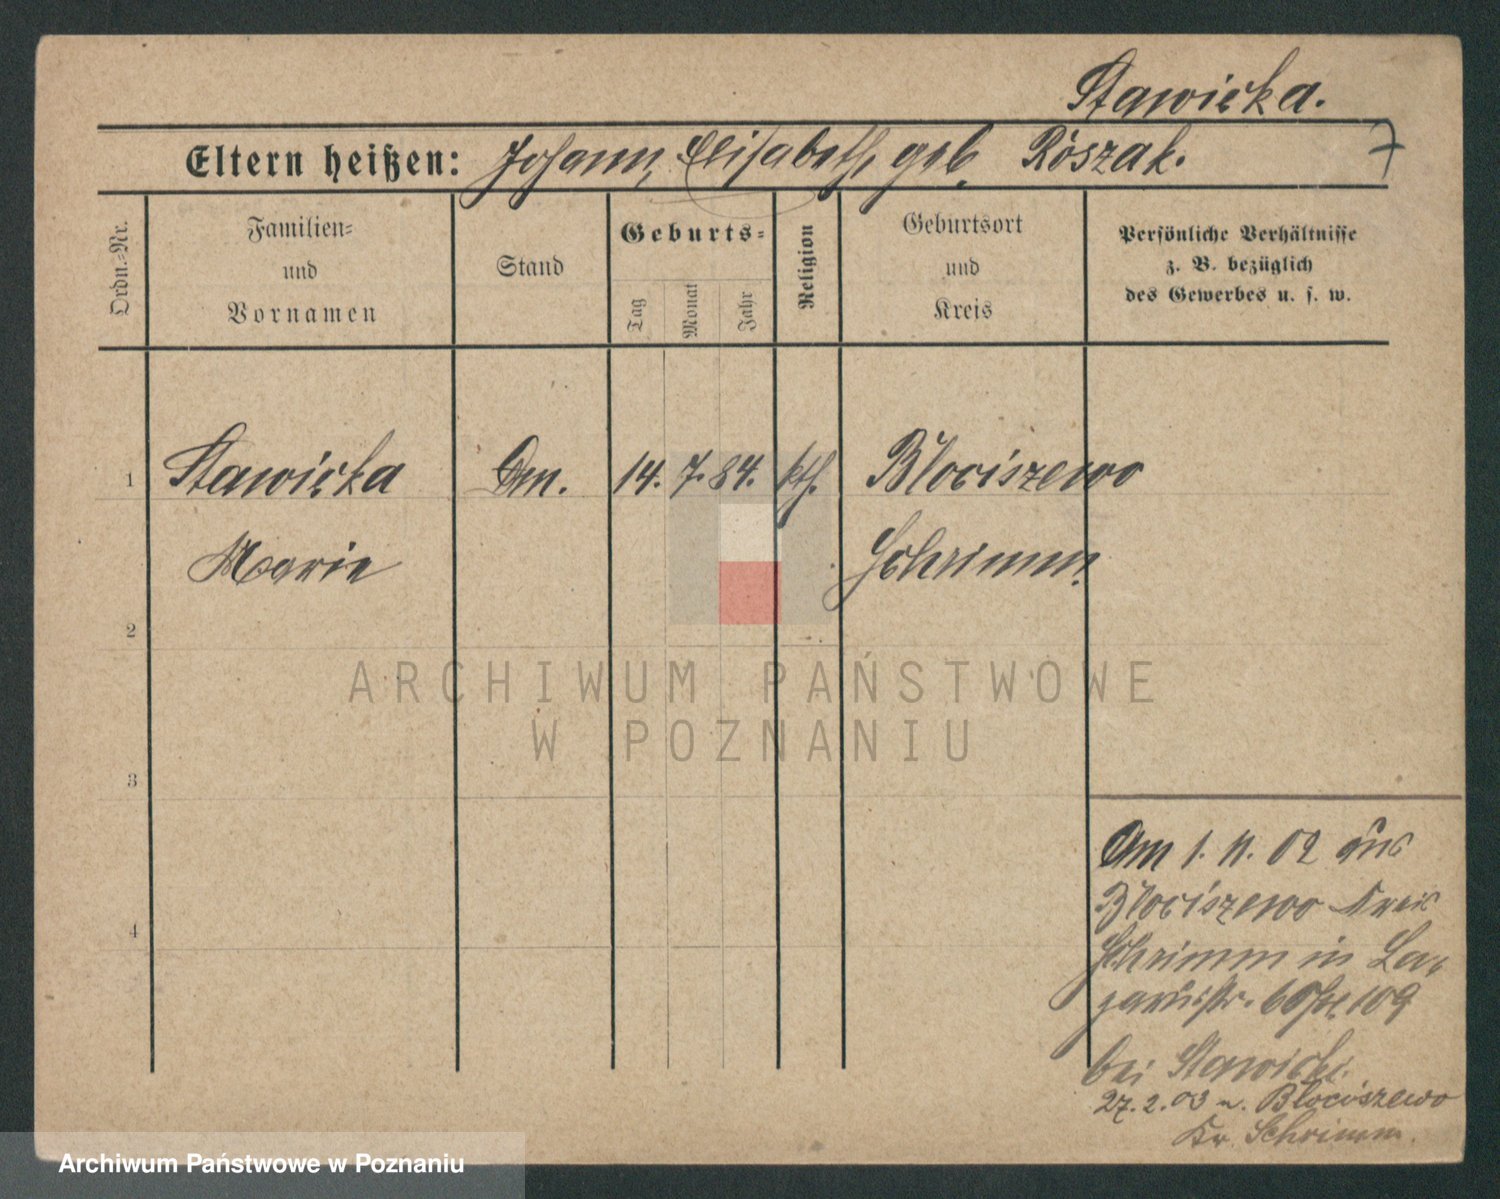 Stawicka.
Eltern heißen: Johann, Elisabeth, geb. Rószak.
7
Ordn.-Nr.
Familien-
und
Vornamen
Stand
Geburts-
Tag
Monat
Jahr
Religion
Geburtsort
und
Kreis
Persönliche Verhältnisse
z. B. bezüglich
des Gewerbes u. s. w.
1 Stawicka 14. 7. 84. kth. Blociszewo
Marie Schrimm.
2
ARCHIWUM PAŃSTWOWE
W POZNANIU
3
Am 1. 11. 02 aus
Blociszewo Kreis
4
Schrimm in La-
zarusstr. 109
bei Stawicki.
27. 2. 03 n. Blociszewo
Kr. Schrimm.
Archiwum Państwowe w Poznaniu